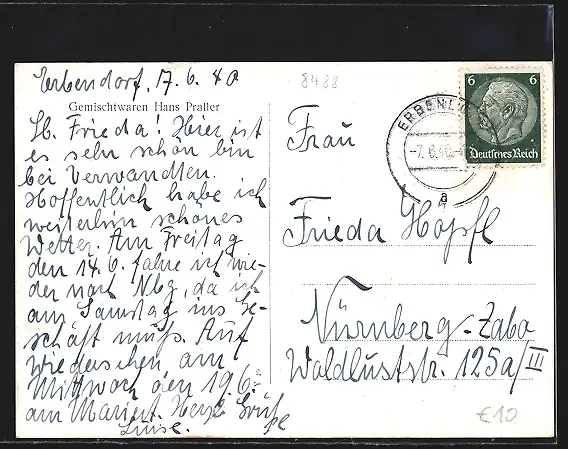 Erbendorf, 7. 6. 40
8488
Gemischtwaren Hans Praller
Lb. Frieda! Hier ist
es sehr schön bin
bei Verwandten.
Hoffentlich habe ich
weiterhin schönes
Wetter. Am Freitag
den 14. 6. fahre ich wie-
der nach Nbg, da ich
am Samstag ins Ge-
schäft muß. Auf
Wiedersehen am
Mittwoch den 19.6.
am Marient. Herzl. Grüße
Luise.
6 6
Deutsches Reich
-7.6.40.
a
Frau
Frieda Höpfl
Nürnberg-Zabo
Waldluststr. 125a/III
€10